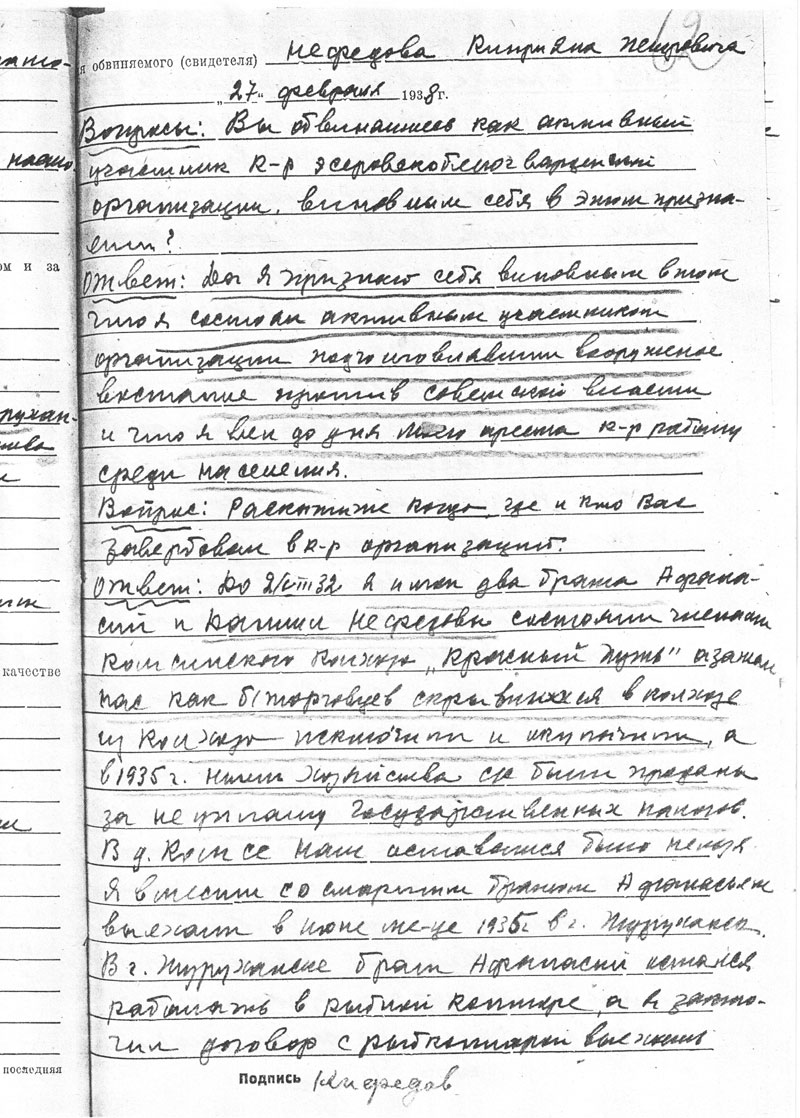 62
я обвиняемого (свидетеля) Нефедова Киприяна Петровича
„27“ февраля 1938 г.
Вопросы: Вы обвиняетесь как активный
участник к-р
организации, виновным себя в этом призна-
ети?
Ответ: Да я признаю себя виновным в том
что я состоял активным участником
организации подготовлявшии вооруженое
востание против советской власти
и что я вел до дня моего ареста к-р работу
среди населения.
Вопрос: Раскажите когда, где и кто Вас
завербовал в к-р организацию.
Ответ: До 2/VIII 32 я и мои два брата Афана-
сий и Нефедовы состояли членами
колхоза „Красный Путь“ а затем
нас как б/торговцев скрывшихся в колхозе
из колхоза исключили и а
в 1935 г. наши хозяйства были проданы
за неуплату государственных налогов.
В д. Комсе нам оставатся было нельзя
Я вмести со старшим братом Афанасьем
выехали в июне ме-це 1935 г. в г. Туруханск.
В г. Туруханске брат Афанасий остался
работать в рыбной конторе, а я заклю-
чил договор с рыбконторой выехать
Подпись Кнефедов
ом и за
рухан-
качестве
последняя